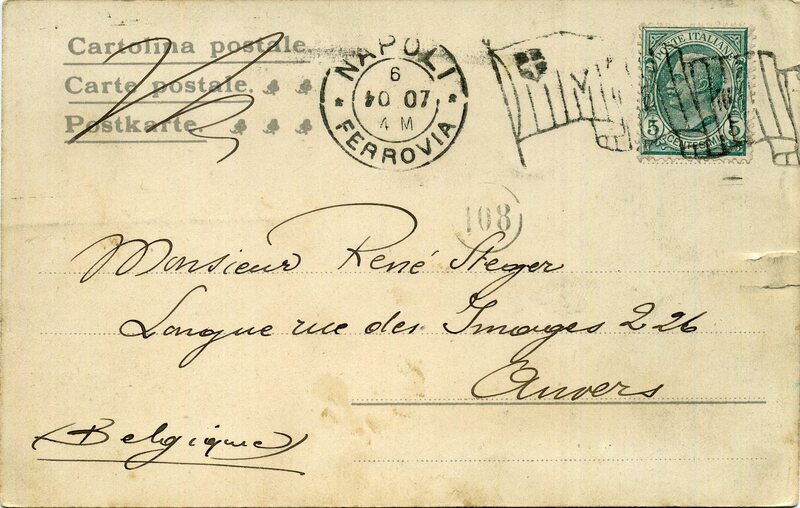 Cartolina postale.
Carte postale.
Postkarte.
NAPOLI
6
10 07
4 M
* FERROVIA *
POSTE ITALIANE
5 CENTESIMI 5
108
Monsieur René Steger
Longue rue des Images 226
Anvers
(Belgique)